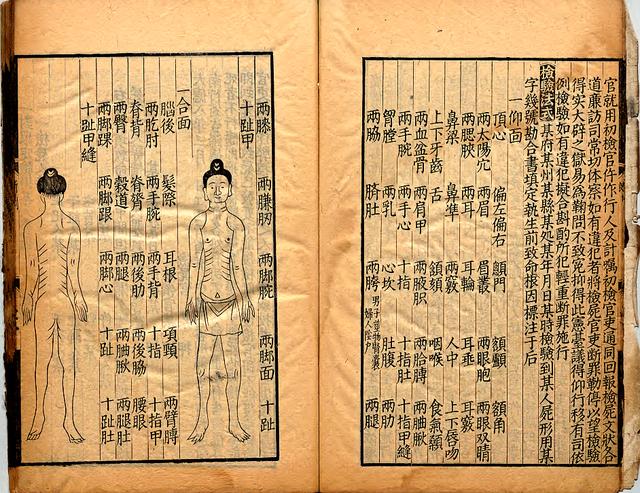 官就用初檢官仵作行人及計囑初檢官吏通同回報檢屍文狀各
道廉訪司常切体察如有違犯者將檢屍官吏断罪勒停以望檢驗
得实大辟之獄易為鞫問不致寃抑得此憲臺議得仰行移有司依
例檢驗如有違犯擬合斟酌所犯輕重断罪施行
檢驗法式 某府某州某縣某处某年月日某時檢驗到某人屍形用某
字幾號勘合書填定執生前致命根因標注于后
一仰面
頂心 偏左偏右 顖門 額顱 額角
兩太陽穴 兩眉 眉叢 兩眼胞 兩眼双睛
兩腮脥 兩耳 耳輪 耳垂 耳竅
鼻梁 鼻準 兩竅 人中 上下唇吻
上下牙齒 舌 頷頦 咽喉 食氣顙
兩血盆骨 兩肩甲 兩腋胑 兩胳膊 兩䏶䐐
兩手腕 兩手心 十指 十指肚 十指甲縫
胷膛 兩乳 心坎 肚腹 兩肋
兩脇 臍肚 兩胯 男子莖物腎囊 婦人陰户 兩腿
兩膝 兩臁肕 兩脚腕 兩脚面 十趾
十趾甲
一合面
腦後 髮際 耳根 項頸 兩臂膊
兩肐肘 兩手腕 兩手背 十指 十指甲
脊背 脊膂 兩後肋 兩後脇 腰眼
兩臀 穀道 兩腿 兩䏶䐐 兩腿肚
兩脚踝 兩脚跟 兩脚心 十趾 十趾肚
十趾甲縫